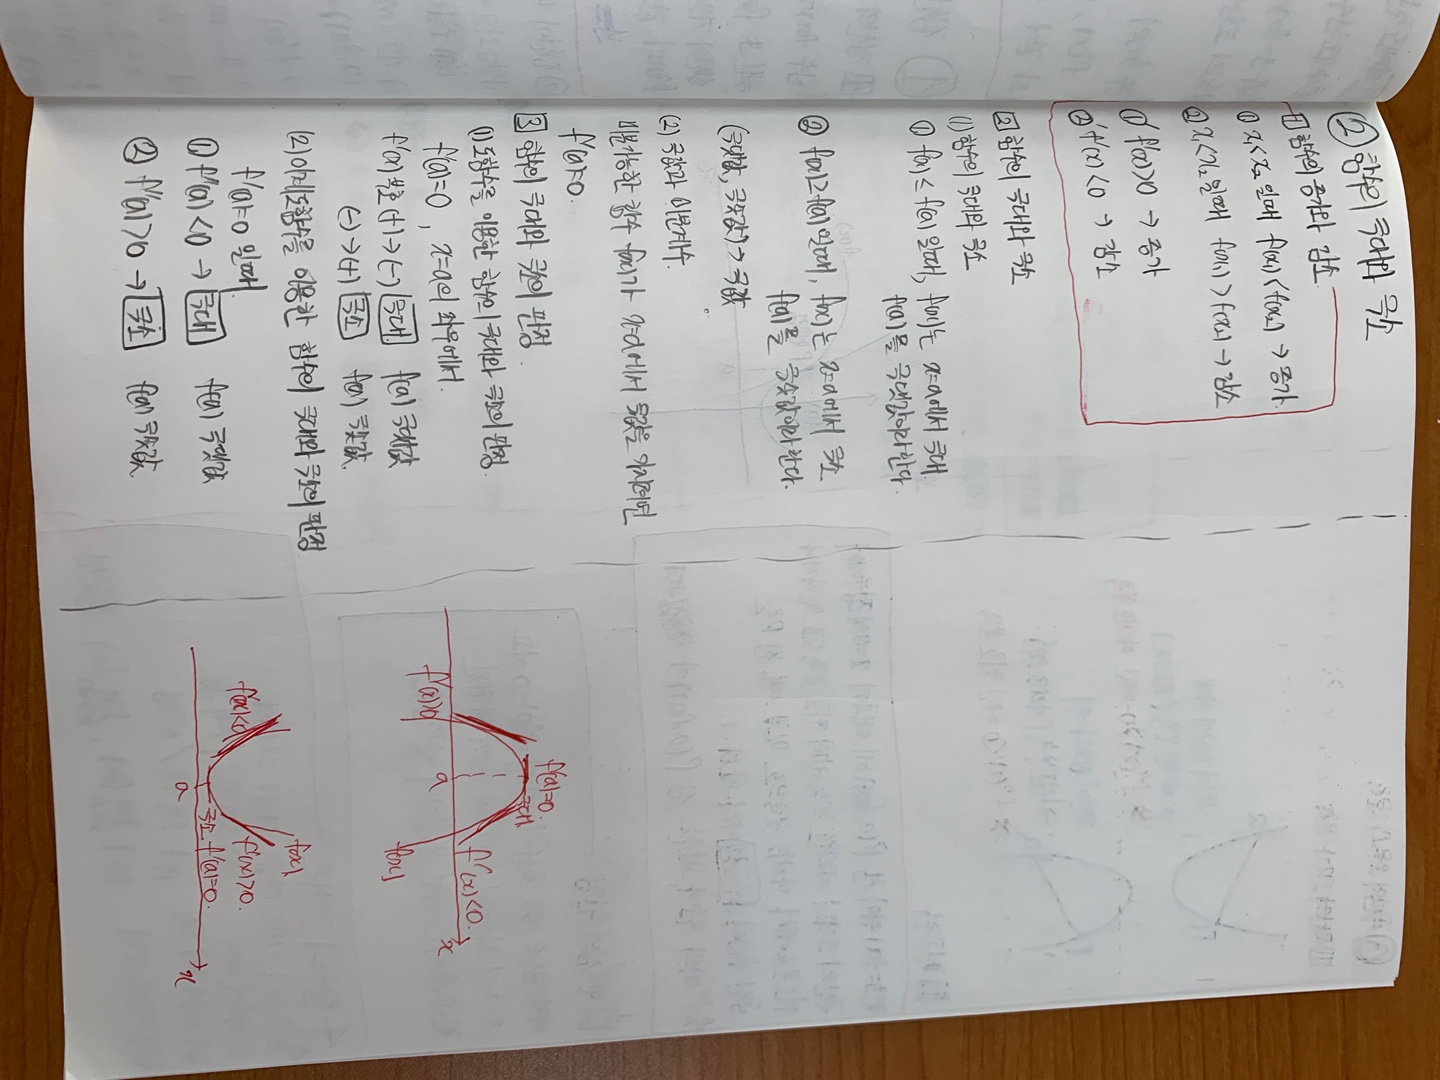 ② 함수의 극대와 극소
1 함수의 증가와 감소
① x₁<x₂ 일때 f(x₁)<f(x₂) → 증가.
② x₁<x₂ 일때 f(x₁)>f(x₂) → 감소
① f'(x)>0 → 증가
② f'(x)<0 → 감소
2 함수의 극대와 극소
(1) 함수의 극대와 극소
① f(x)≤f(a) 일때, f(x)는 x=a에서 극대
f(a)를 극댓값이라 한다.
② f(x)≥f(a) 일때, f(x)는 x=a에서 극소
f(a)를 극솟값이라 한다.
(극댓값, 극솟값) → 극값
(2) 극값과 미분계수.
미분가능한 함수 f(x)가 x=a에서 극값을 가지려면
f'(a)=0.
3 함수의 극대와 극소의 판정.
(1) 도함수를 이용한 함수의 극대와 극소의 판정.
f'(a)=0, x=a의 좌우에서.
f'(x) 부호 (+)→(-) 극대. f(a) 극댓값
(-)→(+) 극소 f(a) 극솟값.
(2) 이계도함수를 이용한 함수의 극대와 극소의 판정
f'(a)=0 일때.
① f''(a)<0 → 극대 f(a) 극댓값
② f''(a)>0 → 극소 f(a) 극솟값.
f'(a)=0.
극대
f'(x)>0
a
f'(x)<0.
f(x)
x
f'(x)<0
f(x)
f'(x)>0.
a
극소. f'(a)=0.
x